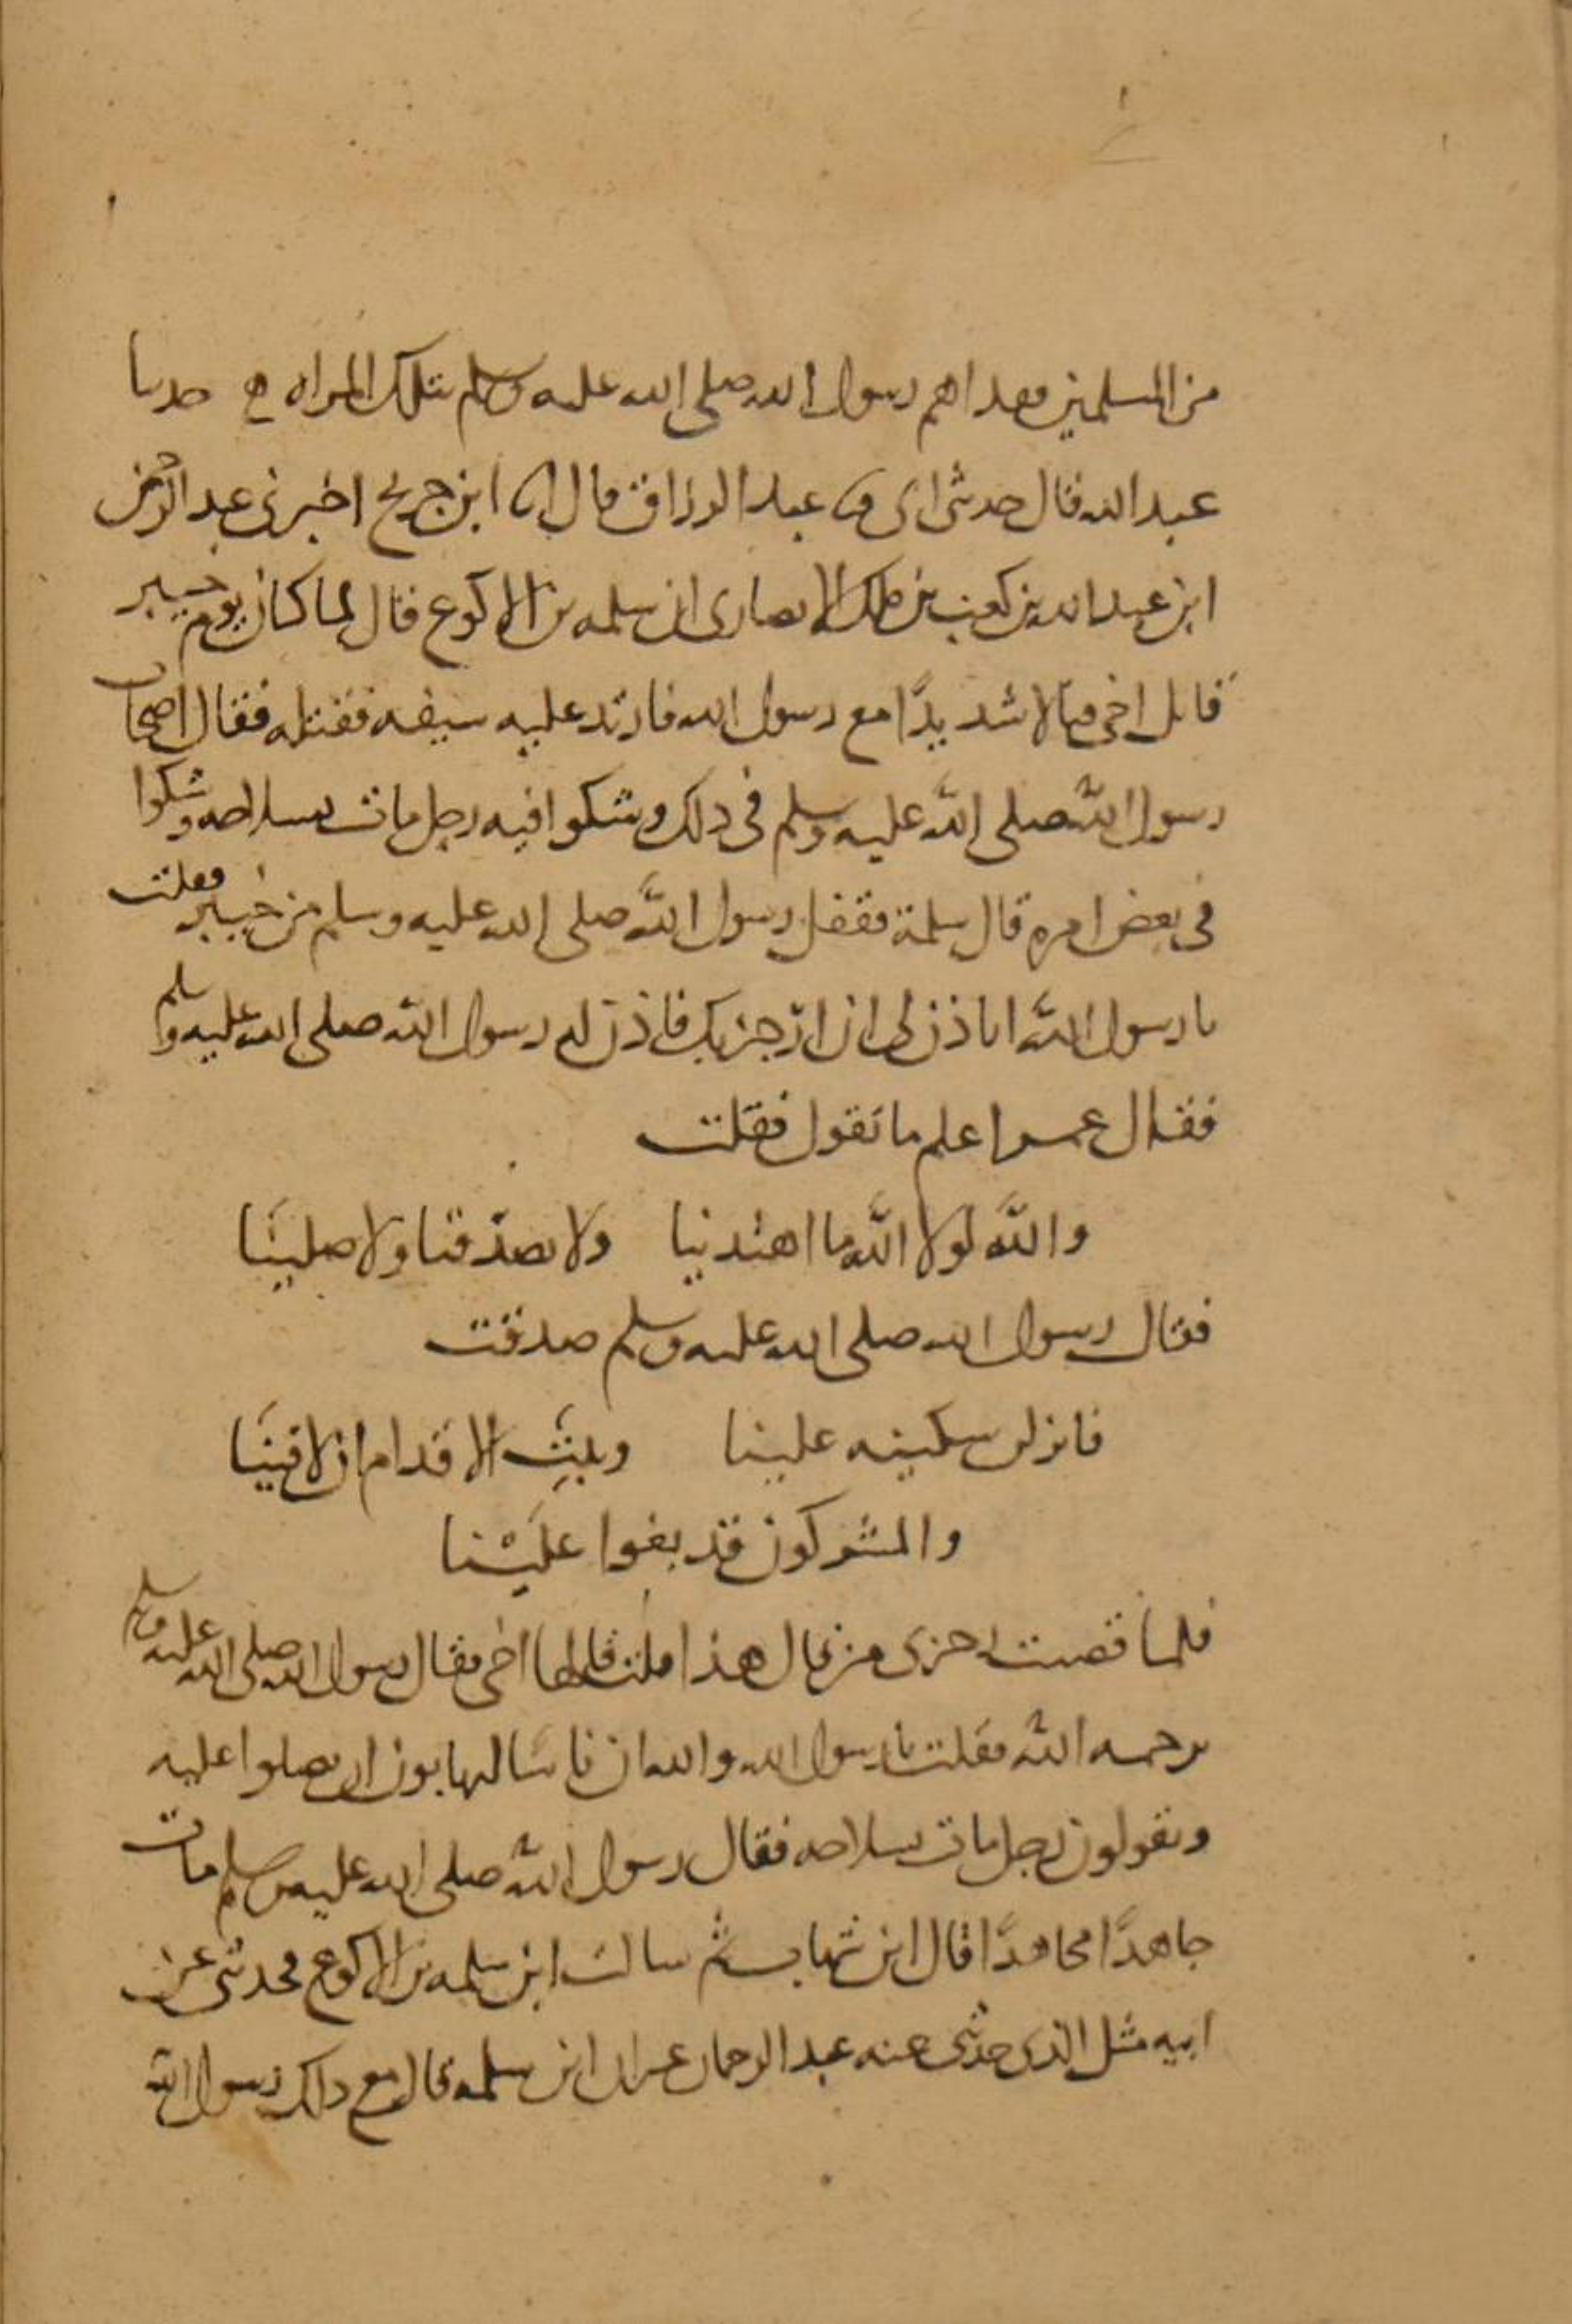 من المسلمين ففداهم رسول الله صلى الله عليه وسلم بتلك المراه ه حدثنا
عبد الله قال حدثنى ابى ثنا عبد الرزاق قال انا ابن جريج اخبرنى عبد الرحمن
ابن عبد الله بن كعب بن ملك الانصارى ان سلمه بن الاكوع قال لما كان يوم خيبر
قاتل اخى قتالا شديدًا مع رسول الله فارتد عليه سيفه فقتله فقال اصحاب
رسول الله صلى الله عليه وسلم فى ذلك وشكوا فيه رجل مات بسلاحه وشكوا
فى بعض امره قال سلمة فقفل رسول الله صلى الله عليه وسلم من خيبر فقلت
يا رسول الله اتاذن لى ان ارجز بك فاذن له رسول الله صلى الله عليه وسلم
فقال عمر اعلم ما تقول فقلت
والله لولا الله ما اهتدينا ولا تصدّقنا ولا صلينَا
فقال رسول الله صلى الله عليه وسلم صدقت
فانزلن سكينه علينا وثبّت الاقدام ان لاقينَا
والمشركون قد بغوا علَيْنا
فلما قضيت رجزى من قال هذا قلت قالها اخى فقال رسول الله صلى الله عليه وسلم
يرحمه الله فقلت يا رسول الله والله ان ناسًا ليهابون ان يصلوا عليه
ويقولون رجل مات بسلاحه فقال رسول الله صلى الله عليه وسلم مات
جاهدًا مجاهدًا قال ابن شهاب ثم سالت ابن سلمه بن الاكوع فحدثنى عن
ابيه مثل الذى حدثنى عنه عبد الرحمان غير ان ابن سلمه قال مع ذلك رسول الله